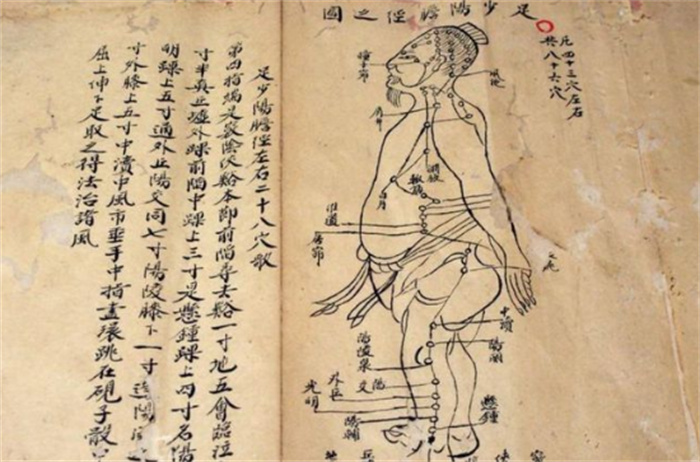 足少陽膽徑之圖
凡四十三穴左右
共八十六穴
風池
肩井
淵液
輒筋
日月
維道
居髎
中瀆
陽關
陽陵泉
陽交
外丘
光明
陽輔
懸鐘
足少陽膽徑左右二十八穴歌
第四指端是竅陰俠谿本節前陷尋去谿一寸地五會臨泣
寸半真丘墟外踝前陷中踝上三寸是懸鐘踝上四寸名陽
明踝上五寸通外丘陽交同七寸陽陵膝下一寸
寸外膝上五寸中瀆中風市垂手中指盡環跳在硯子散
屈上伸下足取之得法治諸風